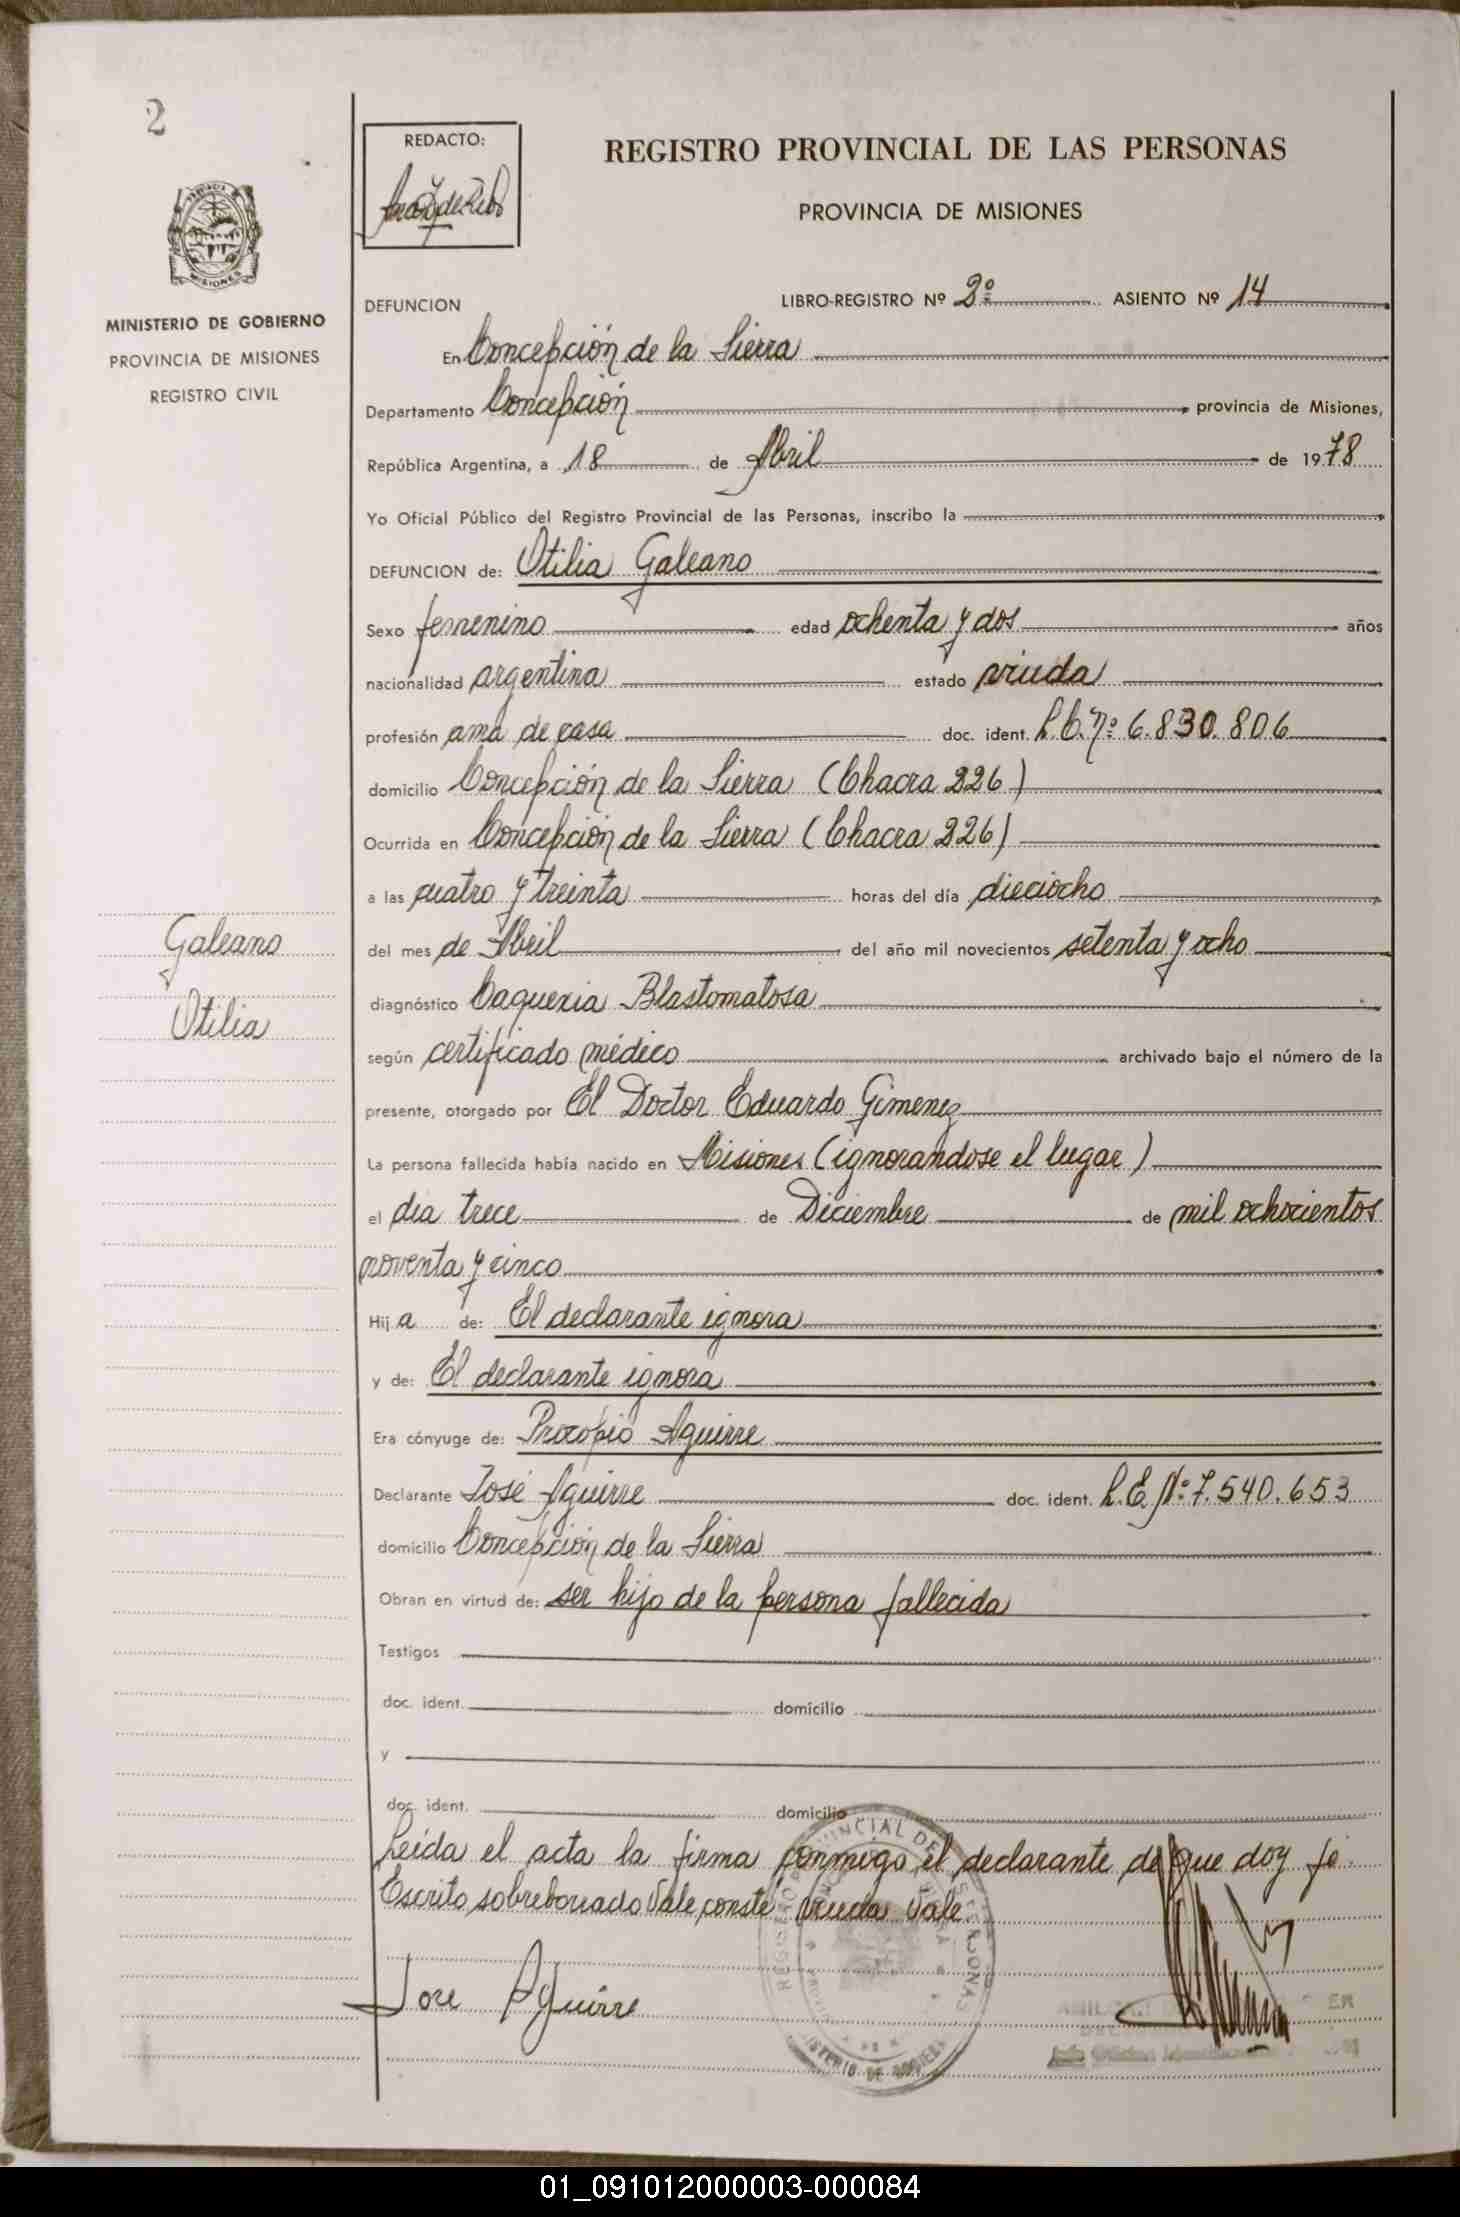 2
REDACTO:
REGISTRO PROVINCIAL DE LAS PERSONAS
PROVINCIA DE MISIONES
MISIONES
MINISTERIO DE GOBIERNO
PROVINCIA DE MISIONES
REGISTRO CIVIL
DEFUNCION LIBRO-REGISTRO Nº 2º ASIENTO Nº 14
En Concepción de la Sierra
Departamento Concepción provincia de Misiones,
República Argentina, a 18 de Abril de 1978
Yo Oficial Público del Registro Provincial de las Personas, inscribo la
DEFUNCION de: Otilia Galeano
Sexo femenino edad ochenta y dos años
nacionalidad argentina estado viuda
profesión ama de casa doc. ident. L.C. nº 6.830.806
domicilio Concepción de la Sierra (Chacra 226)
Ocurrida en Concepción de la Sierra (Chacra 226)
a las cuatro y treinta horas del día dieciocho
Galeano
del mes de Abril del año mil novecientos setenta y ocho
diagnóstico Caquexia Blastomatosa
Otilia
según certificado médico archivado bajo el número de la
presente, otorgado por El Doctor Eduardo Gimenez
La persona fallecida había nacido en Misiones (ignorandose el lugar)
el día trece de Diciembre de mil ochocientos
noventa y cinco
Hija de: El declarante ignora
y de: El declarante ignora
Era cónyuge de: Procopio Aguirre
Declarante José Aguirre doc. ident. L.E. Nº 7.540.653
domicilio Concepción de la Sierra
Obran en virtud de: ser hijo de la persona fallecida
Testigos
doc. ident. domicilio
y
doc. ident. domicilio
Leída el acta la firma conmigo el declarante de que doy fe.
Escrito sobreborrado Vale conste viuda Vale
Jose Aguirre
01_091012000003-000084